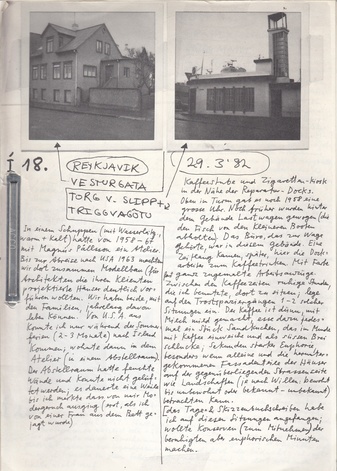 Í 18.
REYKJAVIK
VESTURGATA
TORG V. SLIPP +
TRIGGVAGÖTU
In einem Schuppen (mit Wasserleitg,
warm + kalt) hatte von 1958-67
wir Magnús Pálsson ein Atelier.
Bis zur Abreise nach USA 1963 machten
wir dort zusammen Modellbau (für
Architekten die ihren Klienten
projektierte Häuser deutlich vor-
führen wollten. Wir haben beide, mit
den Familien, jahrelang davon
leben können. Von U.S.A. aus
konnte ich nur während der Sommer-
ferien (2-3 Monate) nach Island
kommen, wohnte dann in dem
Atelier (in einem Abstellraum).
Der Abstellraum hatte feuchte
Wände und konnte nicht gelüf-
tet werden, es dauerte eine Weile
bis ich merkte dass von mir
Modergeruch ausging (erst, als ich
von einer Frau aus dem Bett ge-
jagt wurde)
29.3.'82
Kaffeestube und Zigaretten-kiosk
in der Nähe der Reparatur-Docks.
Oben im Turm gab es noch 1958 eine
grosse Uhr. Noch früher wurden hinter
dem Gebäude Lastwagen gewogen (die
den Fisch von den kleineren Booten
abholten). Das Büro, das zur Waage
gehörte, war in diesem Gebäude. Eine
Zeitlang kamen, später, hier die Dock-
arbeiter zum Kaffeetrinken. Mit Farbe
ganz zugemalte Arbeitsanzüge.
Zwischen den Kaffeezeiten ruhige Stunden,
die ich benutzte, dort zu sitzen, lege
auf den Trostspaziergängen 1-2 solcher
Sitzungen ein. Der Kaffee ist dünn, mit
Milch wird gemischt, esse dazu jedes-
mal ein Stück Sandkuchen, das im Munde
mit Kaffee einweiche und als süssen Brei
schlucke. Sekunden starker Euphorie
besonders wenn alleine und die herunter-
gekommene Fassadenreihe der Häuser
auf der gegenüberliegenden Strassenseite
wie Landschaften (je nach Willen, bewohnt
bis unbewohnt oder bekannt-unbekannt)
betrachten kann.
[das Tage & Skizzenbuchschreiben habe
ich auf diesen Sitzungen angefangen,
wollte Konserven (zum Mitnehmen) der
beruhigten als euphorischen Minuten
machen.